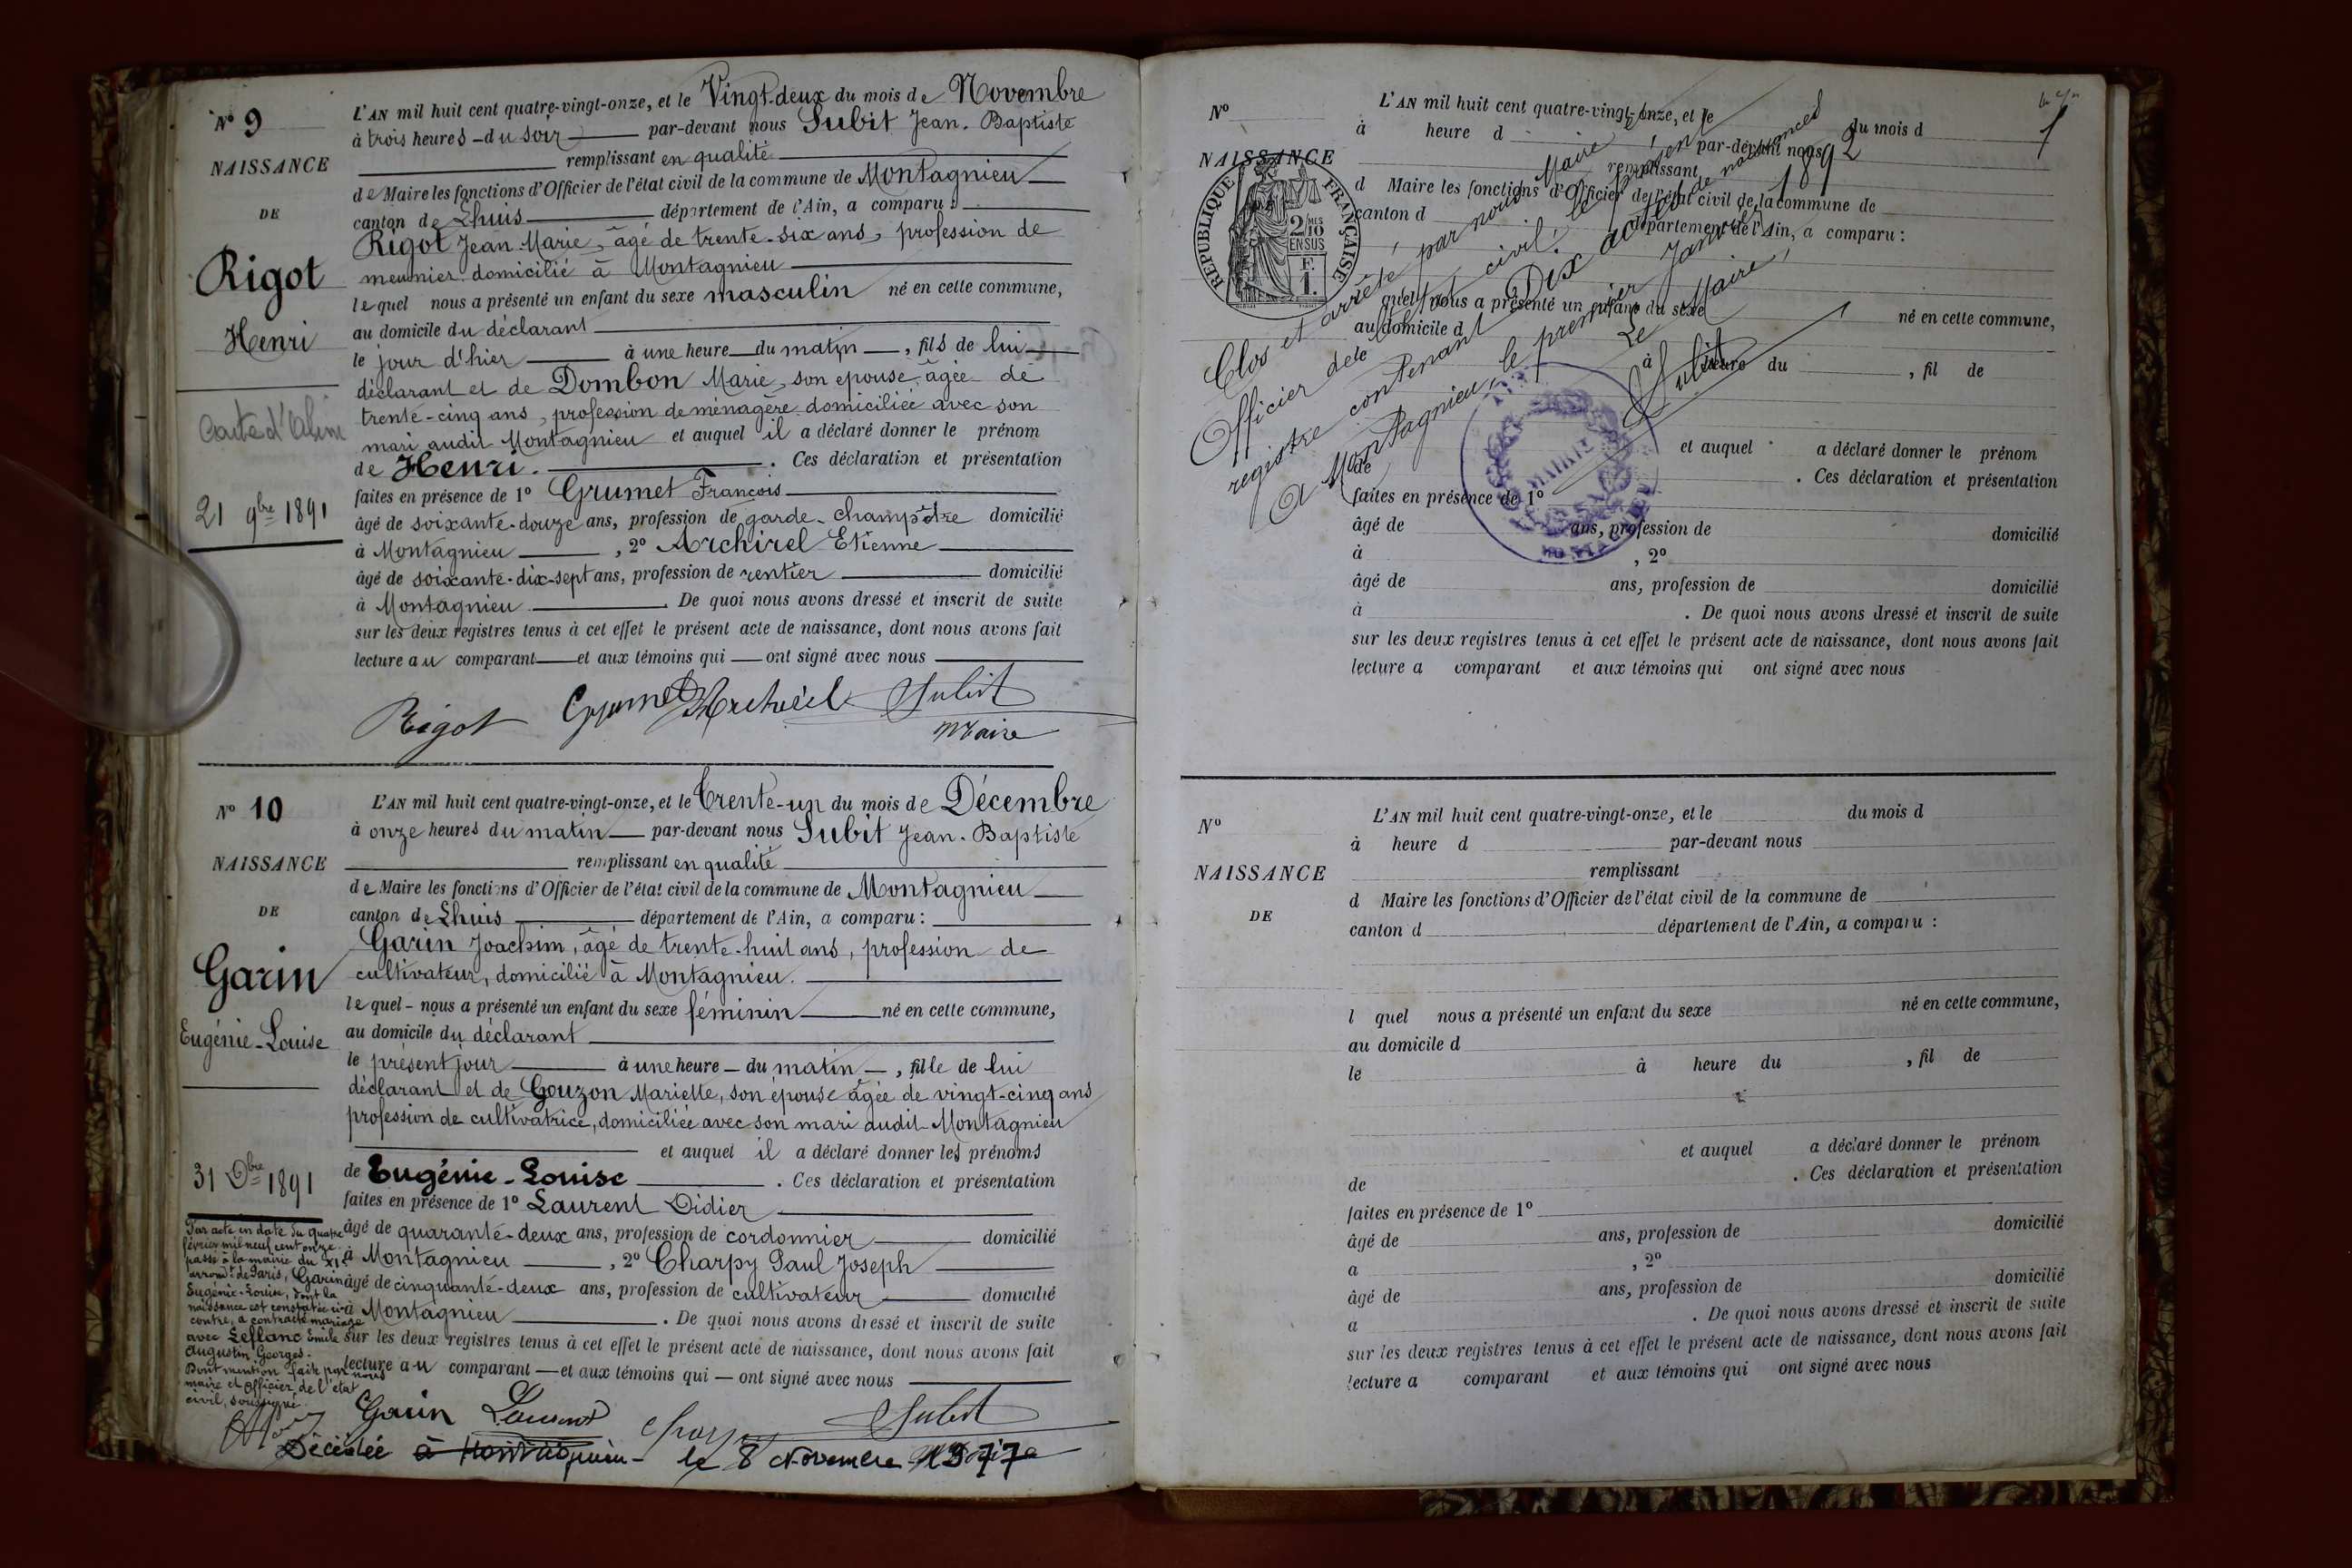 N° 9
NAISSANCE
DE
Rigot
Henri
Carte d'
21 9bre 1891
L'AN mil huit cent quatre-vingt-onze, et le Vingt-deux du mois de Novembre
à trois heures du soir par-devant nous Subit Jean-Baptiste
remplissant en qualité
de Maire les fonctions d'Officier de l'état civil de la commune de Montagnieu
canton de Lhuis département de l'Ain, a comparu :
Rigot Jean Marie, âgé de trente-six ans, profession de
meunier domicilié à Montagnieu
lequel nous a présenté un enfant du sexe masculin né en cette commune,
au domicile du déclarant
le jour d'hier à une heure du matin, fils de lui
déclarant et de Dombon Marie, son épouse, âgée de
trente-cinq ans, profession de ménagère domiciliée avec son
mari audit Montagnieu et auquel il a déclaré donner le prénom
de Henri. Ces déclaration et présentation
faites en présence de 1° Grumet François
âgé de soixante-douze ans, profession de garde-champêtre domicilié
à Montagnieu, 2° Archirel Etienne
âgé de soixante-dix-sept ans, profession de rentier domicilié
à Montagnieu. De quoi nous avons dressé et inscrit de suite
sur les deux registres tenus à cet effet le présent acte de naissance, dont nous avons fait
lecture au comparant et aux témoins qui ont signé avec nous
Rigot Grumet Archirel Subit
Maire
N° 10
NAISSANCE
DE
Garin
Eugénie-Louise
31 Dbre 1891
Par acte en date du quatre
février mil neuf cent onze
passé à la mairie du XIe
arrondt de Paris, Garin
Eugénie-Louise, dont la
naissance est constatée ci-
contre, a contracté mariage
avec Leblanc Emile
Augustin Georges.
Dont mention faite par nous
maire et officier de l'état
civil, soussigné
L'AN mil huit cent quatre-vingt-onze, et le Trente-un du mois de Décembre
à onze heures du matin par-devant nous Subit Jean-Baptiste
remplissant en qualité
de Maire les fonctions d'Officier de l'état civil de la commune de Montagnieu
canton de Lhuis département de l'Ain, a comparu :
Garin Joachim, âgé de trente-huit ans, profession de
cultivateur, domicilié à Montagnieu.
lequel nous a présenté un enfant du sexe féminin né en cette commune,
au domicile du déclarant
le présent jour à une heure du matin, fille de lui
déclarant et de Gouzon Mariette, son épouse âgée de vingt-cinq ans
profession de cultivatrice, domiciliée avec son mari audit Montagnieu
et auquel il a déclaré donner les prénoms
de Eugénie-Louise. Ces déclaration et présentation
faites en présence de 1° Laurent Didier
âgé de quarante-deux ans, profession de cordonnier domicilié
à Montagnieu, 2° Charpy Paul Joseph
âgé de cinquante-deux ans, profession de cultivateur domicilié
à Montagnieu. De quoi nous avons dressé et inscrit de suite
sur les deux registres tenus à cet effet le présent acte de naissance, dont nous avons fait
lecture au comparant et aux témoins qui ont signé avec nous
Garin Laurent Charpy Subit
Décédée à Montagnieu le 8 Novembre 1977
N°
NAISSANCE
RÉPUBLIQUE FRANÇAISE
2/10 MES
EN SUS
F.
1.
L'AN mil huit cent quatre-vingt-onze, et le du mois d
à heure d par-devant nous
remplissant
d Maire les fonctions d'Officier de l'état civil de la commune de
canton d département de l'Ain, a comparu :
quel nous a présenté un enfant du sexe né en cette commune,
au domicile d
le à heure du , fil de
et auquel a déclaré donner le prénom
de . Ces déclaration et présentation
faites en présence de 1°
âgé de ans, profession de domicilié
à , 2°
âgé de ans, profession de domicilié
à . De quoi nous avons dressé et inscrit de suite
sur les deux registres tenus à cet effet le présent acte de naissance, dont nous avons fait
lecture a comparant et aux témoins qui ont signé avec nous
Clos et arrêté par nous Maire,
Officier de l'état civil, le présent
registre contenant Dix actes de naissances
A Montagnieu, le premier Janvier 1892
Le Maire,
Subit
MAIRIE
N°
NAISSANCE
DE
L'AN mil huit cent quatre-vingt-onze, et le du mois d
à heure d par-devant nous
remplissant
d Maire les fonctions d'Officier de l'état civil de la commune de
canton d département de l'Ain, a comparu :
l quel nous a présenté un enfant du sexe né en cette commune,
au domicile d
le à heure du , fil de
et auquel a déclaré donner le prénom
de . Ces déclaration et présentation
faites en présence de 1°
âgé de ans, profession de domicilié
a , 2°
âgé de ans, profession de domicilié
a . De quoi nous avons dressé et inscrit de suite
sur les deux registres tenus à cet effet le présent acte de naissance, dont nous avons fait
lecture a comparant et aux témoins qui ont signé avec nous